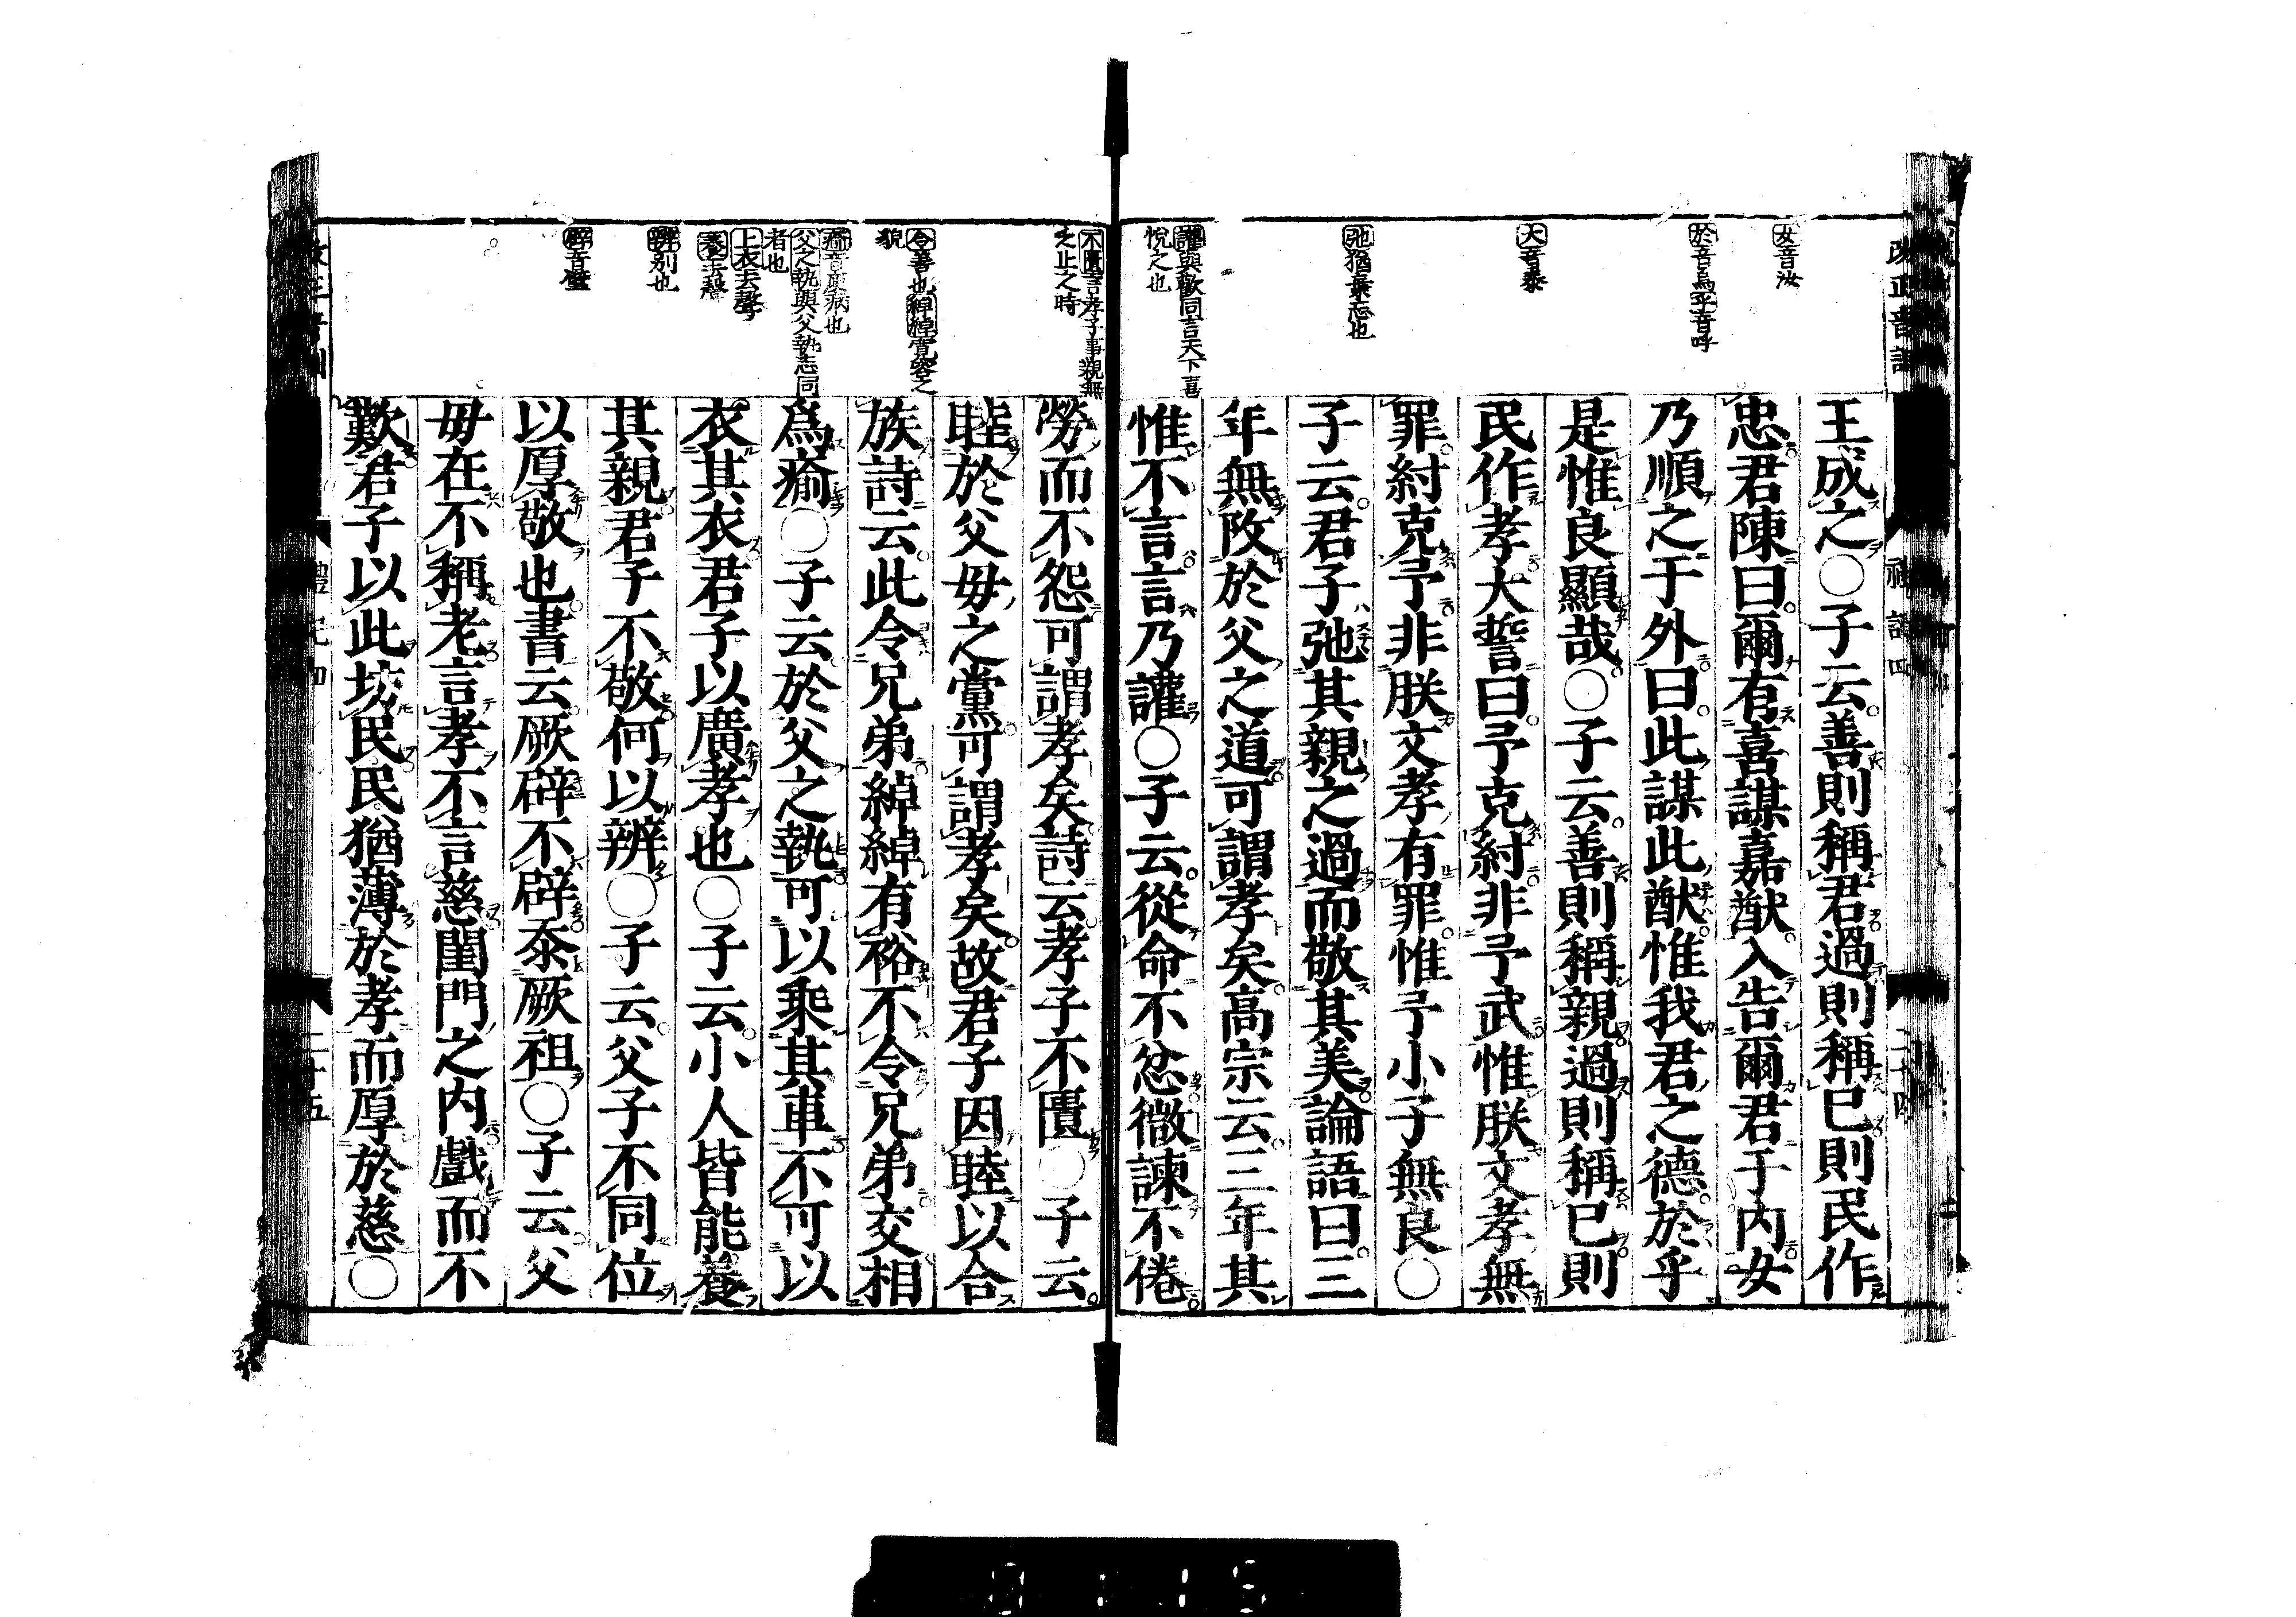 女音汝
於音烏乎音呼
大音泰
弛猶棄忘也
讙與歡同言天下喜
悅之也
王成之○子云善則稱君過則稱已則民作
忠君陳曰爾有嘉謀嘉猷入告爾君于內女
乃順之于外曰此謀此猷惟我君之德於乎
是惟良顯哉○子云善則稱親過則稱已則
民作孝大誓曰予克紂非予武惟朕文孝無
罪紂克予非朕文孝有罪惟予小子無良○
子云君子弛其親之過而敬其美論語曰三
年無攺於父之道可謂孝矣高宗云三年其
惟不言言乃讙○子云從命不忿微諫不倦
不匱言孝子事親無
乏止之時
令善也綽綽寬容之
貌
瘉音庾病也
父之執與父執志同
者也
上衣去聲
養去聲
辨別也
辟音僻
勞而不怨可謂孝矣詩云孝子不匱○子云
睦於父毋之黨可謂孝矣故君子因睦以合
族詩云此令兄弟綽綽有裕不令兄弟交相
爲瘉○子云於父之執可以乘其車不可以
衣其衣君子以廣孝也○子云小人皆能養
其親君子不敬何以辨○子云父子不同位
以厚敬也書云厥辟不辟忝厥祖○子云父
毋在不稱老言孝不言慈閨門之內戲而不
歎君子以此坊民民猶薄於孝而厚於慈○